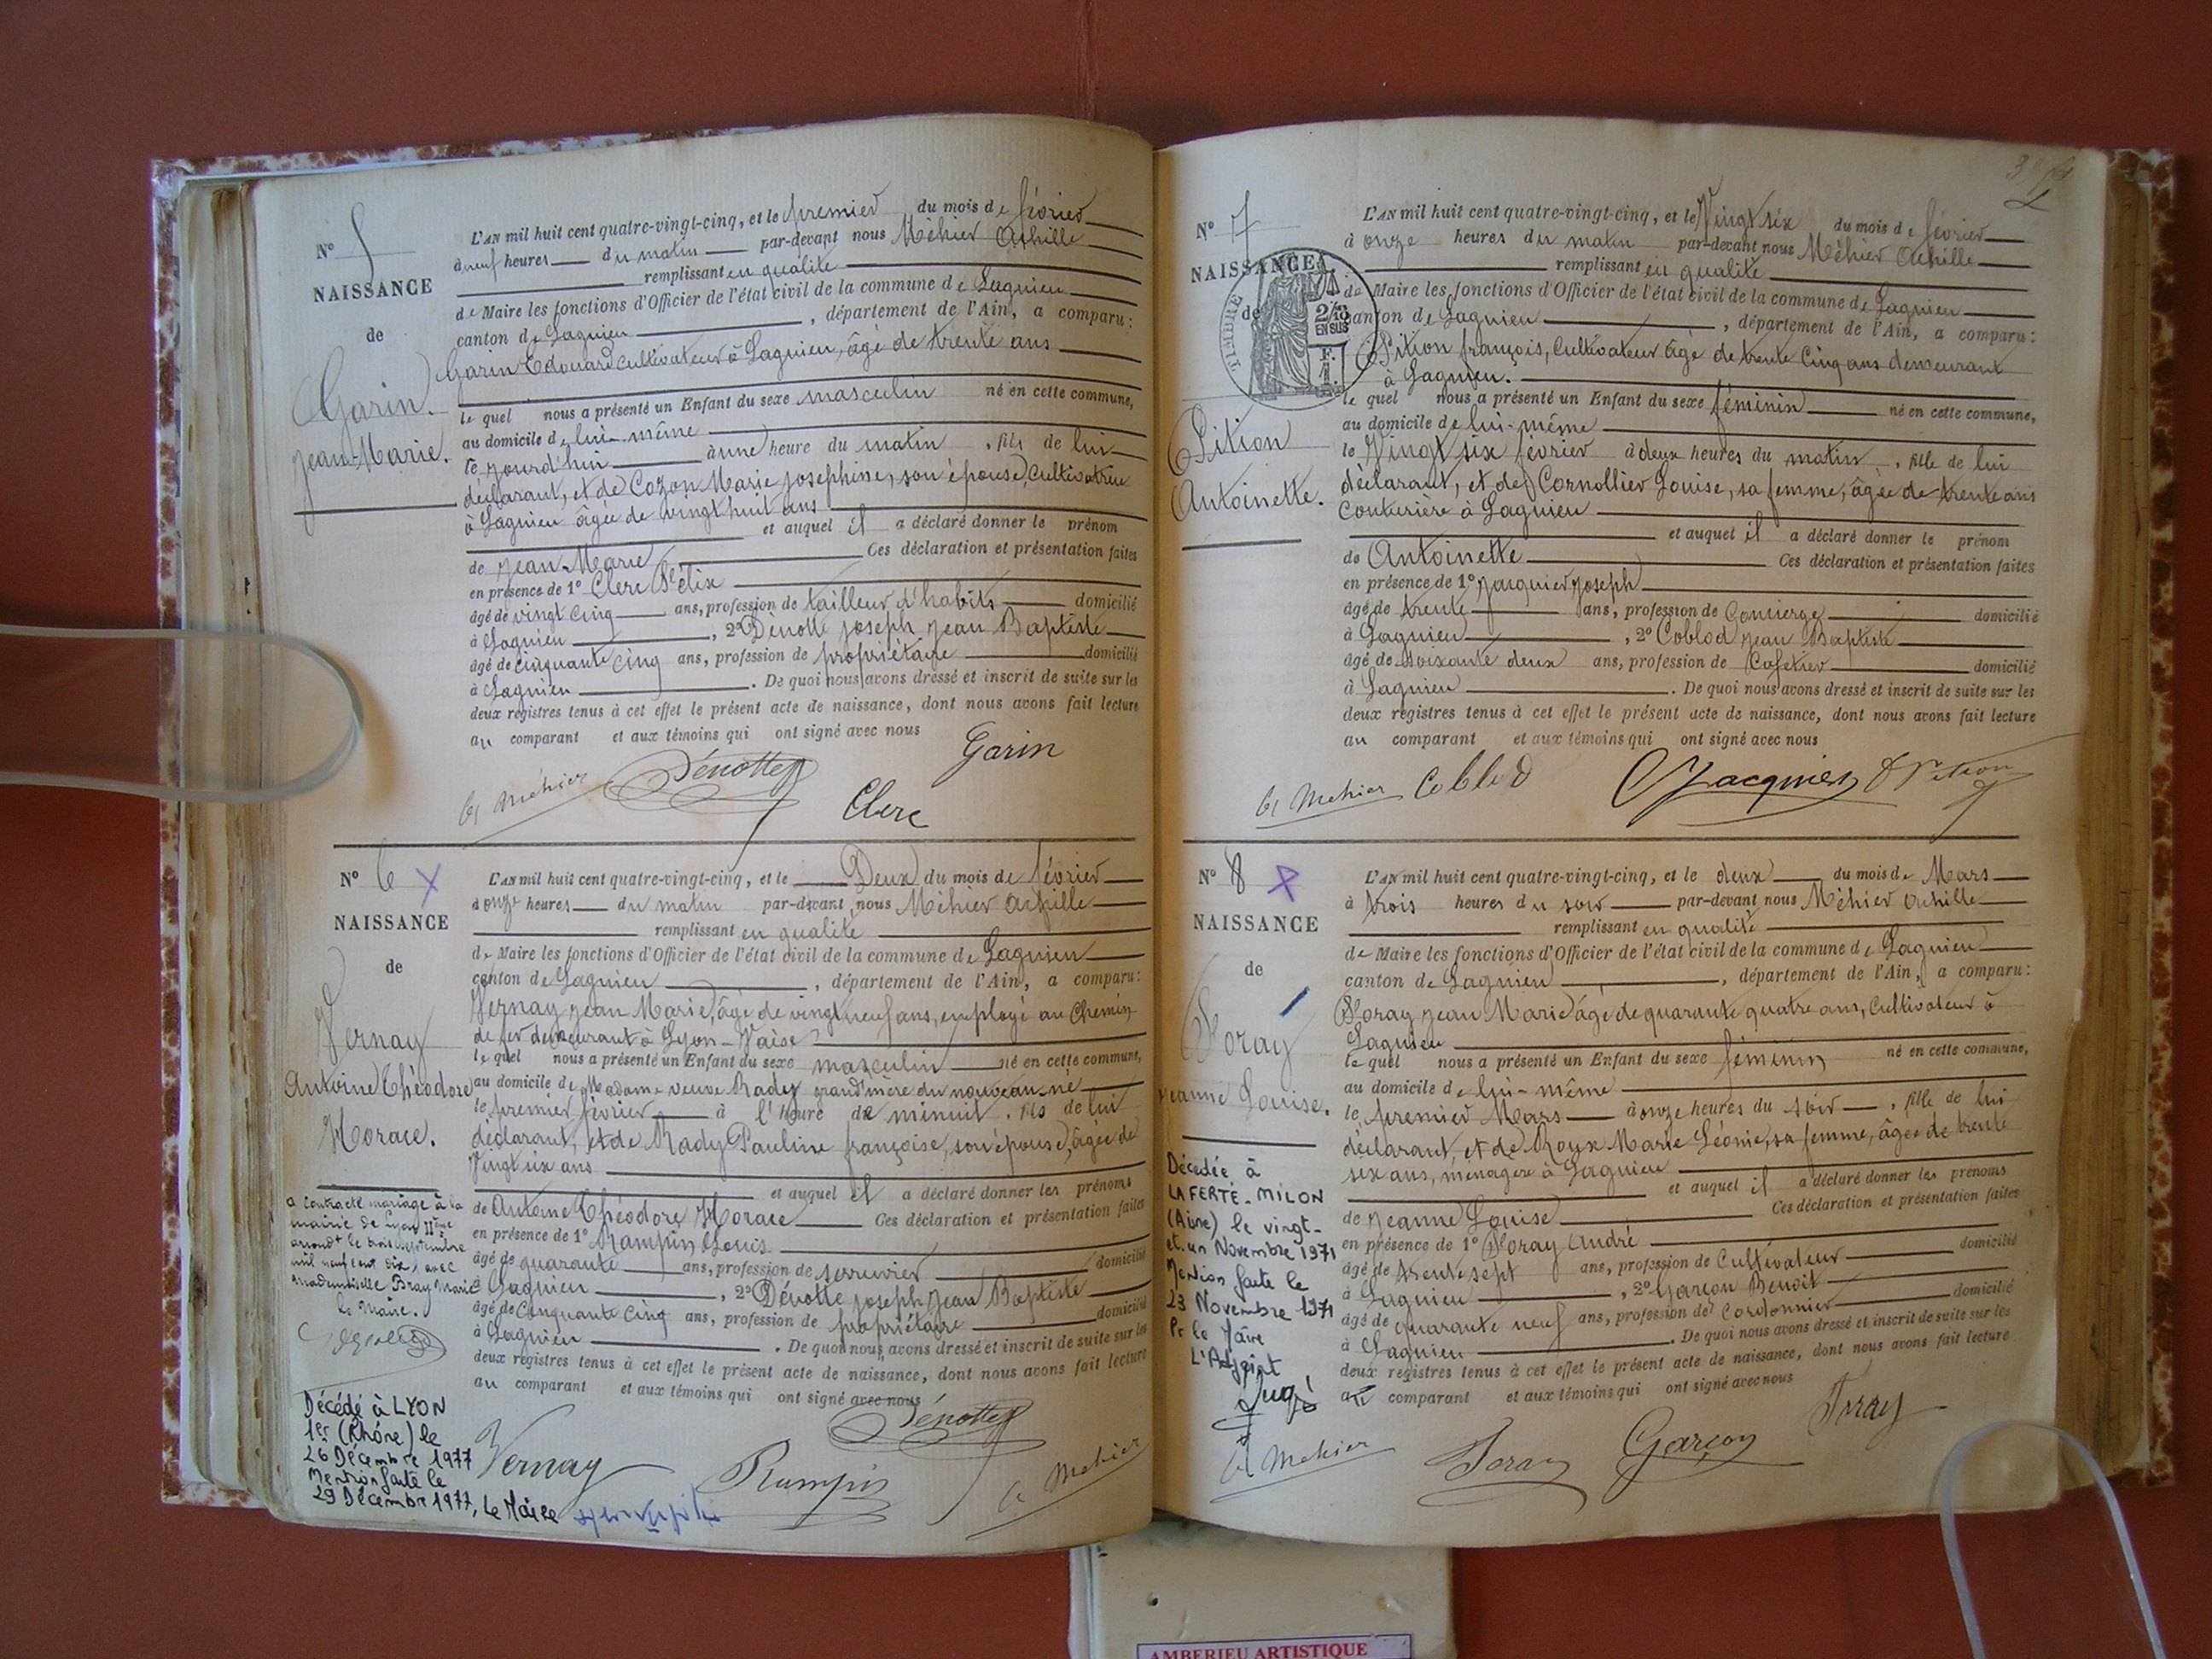 N° 5
NAISSANCE
de
Garin
Jean-Marie.
L'AN mil huit cent quatre-vingt-cinq, et le premier du mois de février
à neuf heures du matin par-devant nous Méhier Achille
remplissant en qualité
de Maire les fonctions d'Officier de l'état civil de la commune de Lagnieu
canton de Lagnieu, département de l'Ain, a comparu:
Garin Edouard cultivateur à Lagnieu, âgé de trente ans
le quel nous a présenté un Enfant du sexe masculin né en cette commune,
au domicile de lui-même
le jourd'hui à une heure du matin, fils de lui
déclarant, et de Cozon Marie Josephine, son épouse, cultivatrice
à Lagnieu âgée de vingt huit ans
et auquel il a déclaré donner le prénom
de Jean-Marie Ces déclaration et présentation faites
en présence de 1° Clerc Félix
âgé de vingt cinq ans, profession de tailleur d'habits domicilié
à Lagnieu, 2° Dénotte Joseph Jean Baptiste
âgé de cinquante cinq ans, profession de propriétaire domicilié
à Lagnieu. De quoi nous avons dressé et inscrit de suite sur les
deux registres tenus à cet effet le présent acte de naissance, dont nous avons fait lecture
au comparant et aux témoins qui ont signé avec nous
Garin
Méhier Dénotte
Clerc
N° 6
NAISSANCE
de
Vernay
Antoine Théodore
Horace.
L'AN mil huit cent quatre-vingt-cinq, et le Deux du mois de février
à onze heures du matin par-devant nous Méhier Achille
remplissant en qualité
de Maire les fonctions d'Officier de l'état civil de la commune de Lagnieu
canton de Lagnieu, département de l'Ain, a comparu:
Vernay Jean Marie, âgé de vingt neuf ans, employé au Chemin
de fer demeurant à Lyon-Vaise
le quel nous a présenté un Enfant du sexe masculin né en cette commune,
au domicile de Madame veuve Rady grand'mère du nouveau-né
le premier février à l'heure de minuit, fils de lui
déclarant, et de Rady Pauline françoise, son épouse, âgée de
Vingt six ans
et auquel il a déclaré donner les prénoms
de Antoine Théodore Horace Ces déclaration et présentation faites
en présence de 1° Rampin Louis
âgé de quarante ans, profession de serrurier domicilié
à Lagnieu, 2° Dénotte Joseph Jean Baptiste
âgé de cinquante cinq ans, profession de propriétaire domicilié
à Lagnieu. De quoi nous avons dressé et inscrit de suite sur les
deux registres tenus à cet effet le présent acte de naissance, dont nous avons fait lecture
au comparant et aux témoins qui ont signé avec nous
a contracté mariage à la
mairie de Lyon IIème
arrondt le trois septembre
mil neuf cent dix, avec
mademoiselle Bray Marie
le Maire.
Décédé à LYON
1er (Rhône) le
26 Décembre 1977
Mention faite le
29 Décembre 1977, Le Maire
Dénotte
Vernay Rampin Méhier
N° 7
NAISSANCE
de
Pition
Antoinette.
TIMBRE
2/10
EN SUS
F.
1.
L'AN mil huit cent quatre-vingt-cinq, et le Vingt six du mois de février
à onze heures du matin par-devant nous Méhier Achille
remplissant en qualité
de Maire les fonctions d'Officier de l'état civil de la commune de Lagnieu
canton de Lagnieu, département de l'Ain, a comparu:
Pition françois, Cultivateur âgé de trente cinq ans demeurant
à Lagnieu.
le quel nous a présenté un Enfant du sexe féminin né en cette commune,
au domicile de lui-même
le Vingt six février à deux heures du matin, fille de lui
déclarant, et de Cornollier Louise, sa femme, âgée de trente ans
couturière à Lagnieu
et auquel il a déclaré donner le prénom
de Antoinette Ces déclaration et présentation faites
en présence de 1° Jacquier Joseph
âgé de trente ans, profession de Concierge domicilié
à Lagnieu, 2° Coblod Jean Baptiste
âgé de soixante deux ans, profession de Cafetier domicilié
à Lagnieu. De quoi nous avons dressé et inscrit de suite sur les
deux registres tenus à cet effet le présent acte de naissance, dont nous avons fait lecture
au comparant et aux témoins qui ont signé avec nous
Méhier Coblod Jacquier Pition
N° 8
NAISSANCE
de
Foray
Jeanne Louise.
L'AN mil huit cent quatre-vingt-cinq, et le deux du mois de Mars
à trois heures du soir par-devant nous Méhier Achille
remplissant en qualité
de Maire les fonctions d'Officier de l'état civil de la commune de Lagnieu
canton de Lagnieu, département de l'Ain, a comparu:
Foray Jean Marie âgé de quarante quatre ans, Cultivateur à
Lagnieu
le quel nous a présenté un Enfant du sexe féminin né en cette commune,
au domicile de lui-même
le premier Mars à onze heures du soir, fille de lui
déclarant, et de Roux Marie Léonie, sa femme, âgée de trente
six ans, ménagère à Lagnieu
et auquel il a déclaré donner les prénoms
de Jeanne Louise Ces déclaration et présentation faites
en présence de 1° Foray André
âgé de trente sept ans, profession de Cultivateur domicilié
à Lagnieu, 2° Garçon Benoit
âgé de quarante neuf ans, profession de Cordonnier domicilié
à Lagnieu. De quoi nous avons dressé et inscrit de suite sur les
deux registres tenus à cet effet le présent acte de naissance, dont nous avons fait lecture
au comparant et aux témoins qui ont signé avec nous
Décédée à
LA FERTÉ-MILON
(Aisne) le vingt-
et-un Novembre 1971
Mention faite le
23 Novembre 1971
Pr le Maire
L'Adjoint
Méhier Foray Garçon Foray
AMBERIEU ARTISTIQUE